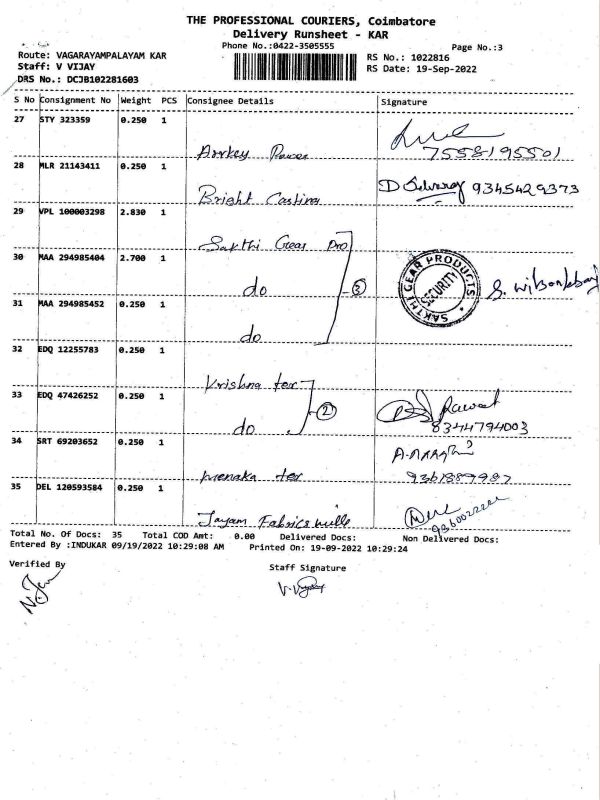 THE PROFESSIONAL COURIERS, Coimbatore
Delivery Runsheet - KAR
Phone No.:0422-3505555
Page No.:3
Route: VAGARAYAMPALAYAM KAR
Staff: V VIJAY
DRS No.: DCJB102281603
RS No.: 1022816
RS Date: 19-Sep-2022
S No Consignment No Weight PCS Consignee Details Signature
27 STY 323359 0.250 1
Arrkey Power 7558195501
28 MLR 21143411 0.250 1
Bright Casting D Selvaraj 9345429373
29 VPL 100003298 2.830 1
Sakthi Gear Pro
30 MAA 294985404 2.700 1
do 3
SAKTHI GEAR PRODUCTS
SECURITY
31 MAA 294985452 0.250 1
do
32 EDQ 12255783 0.250 1
Krishna tex
33 EDQ 47426252 0.250 1
do 2 Rawat
8344794003
34 SRT 69203652 0.250 1
Menaka tex 9361889987
35 DEL 120593584 0.250 1
Jayam Fabrics mills
Total No. Of Docs: 35 Total COD Amt: 0.00 Delivered Docs: Non Delivered Docs:
Entered By :INDUKAR 09/19/2022 10:29:08 AM Printed On: 19-09-2022 10:29:24
Verified By
Staff Signature
V.Vijay